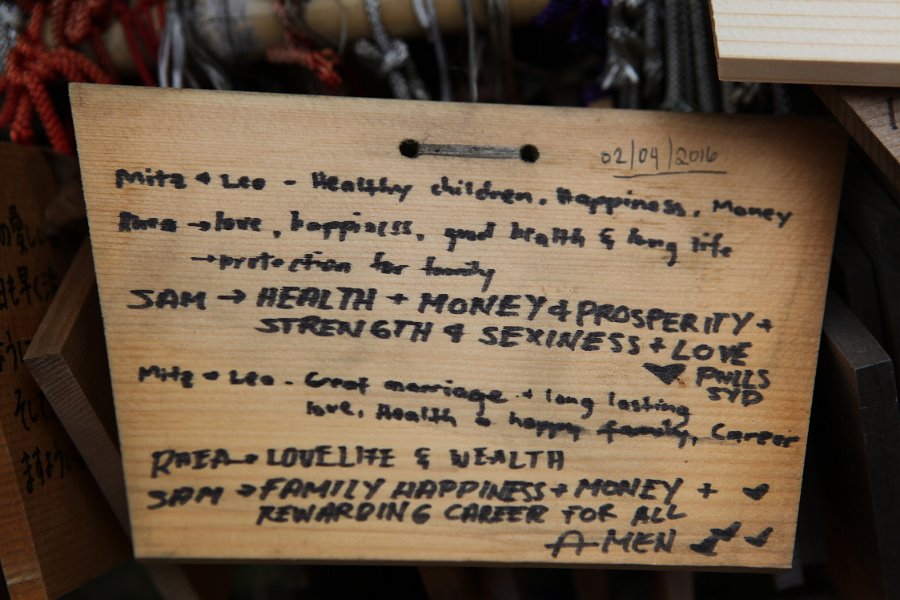 02/04/2016
Mitz & Leo - Healthy children, Happiness, Money
Rhea → love, happiness, good health & long life
→ protection for family
SAM → HEALTH + MONEY & PROSPERITY +
STRENGTH & SEXINESS + LOVE
♥ PHILLS
SYD
Mitz & Leo - Great marriage + long lasting
love, Health & happy family, Career
RHEA → LOVELIFE & WEALTH
SAM → FAMILY HAPPINESS + MONEY + ♥
REWARDING CAREER FOR ALL
AMEN ♥♥♥